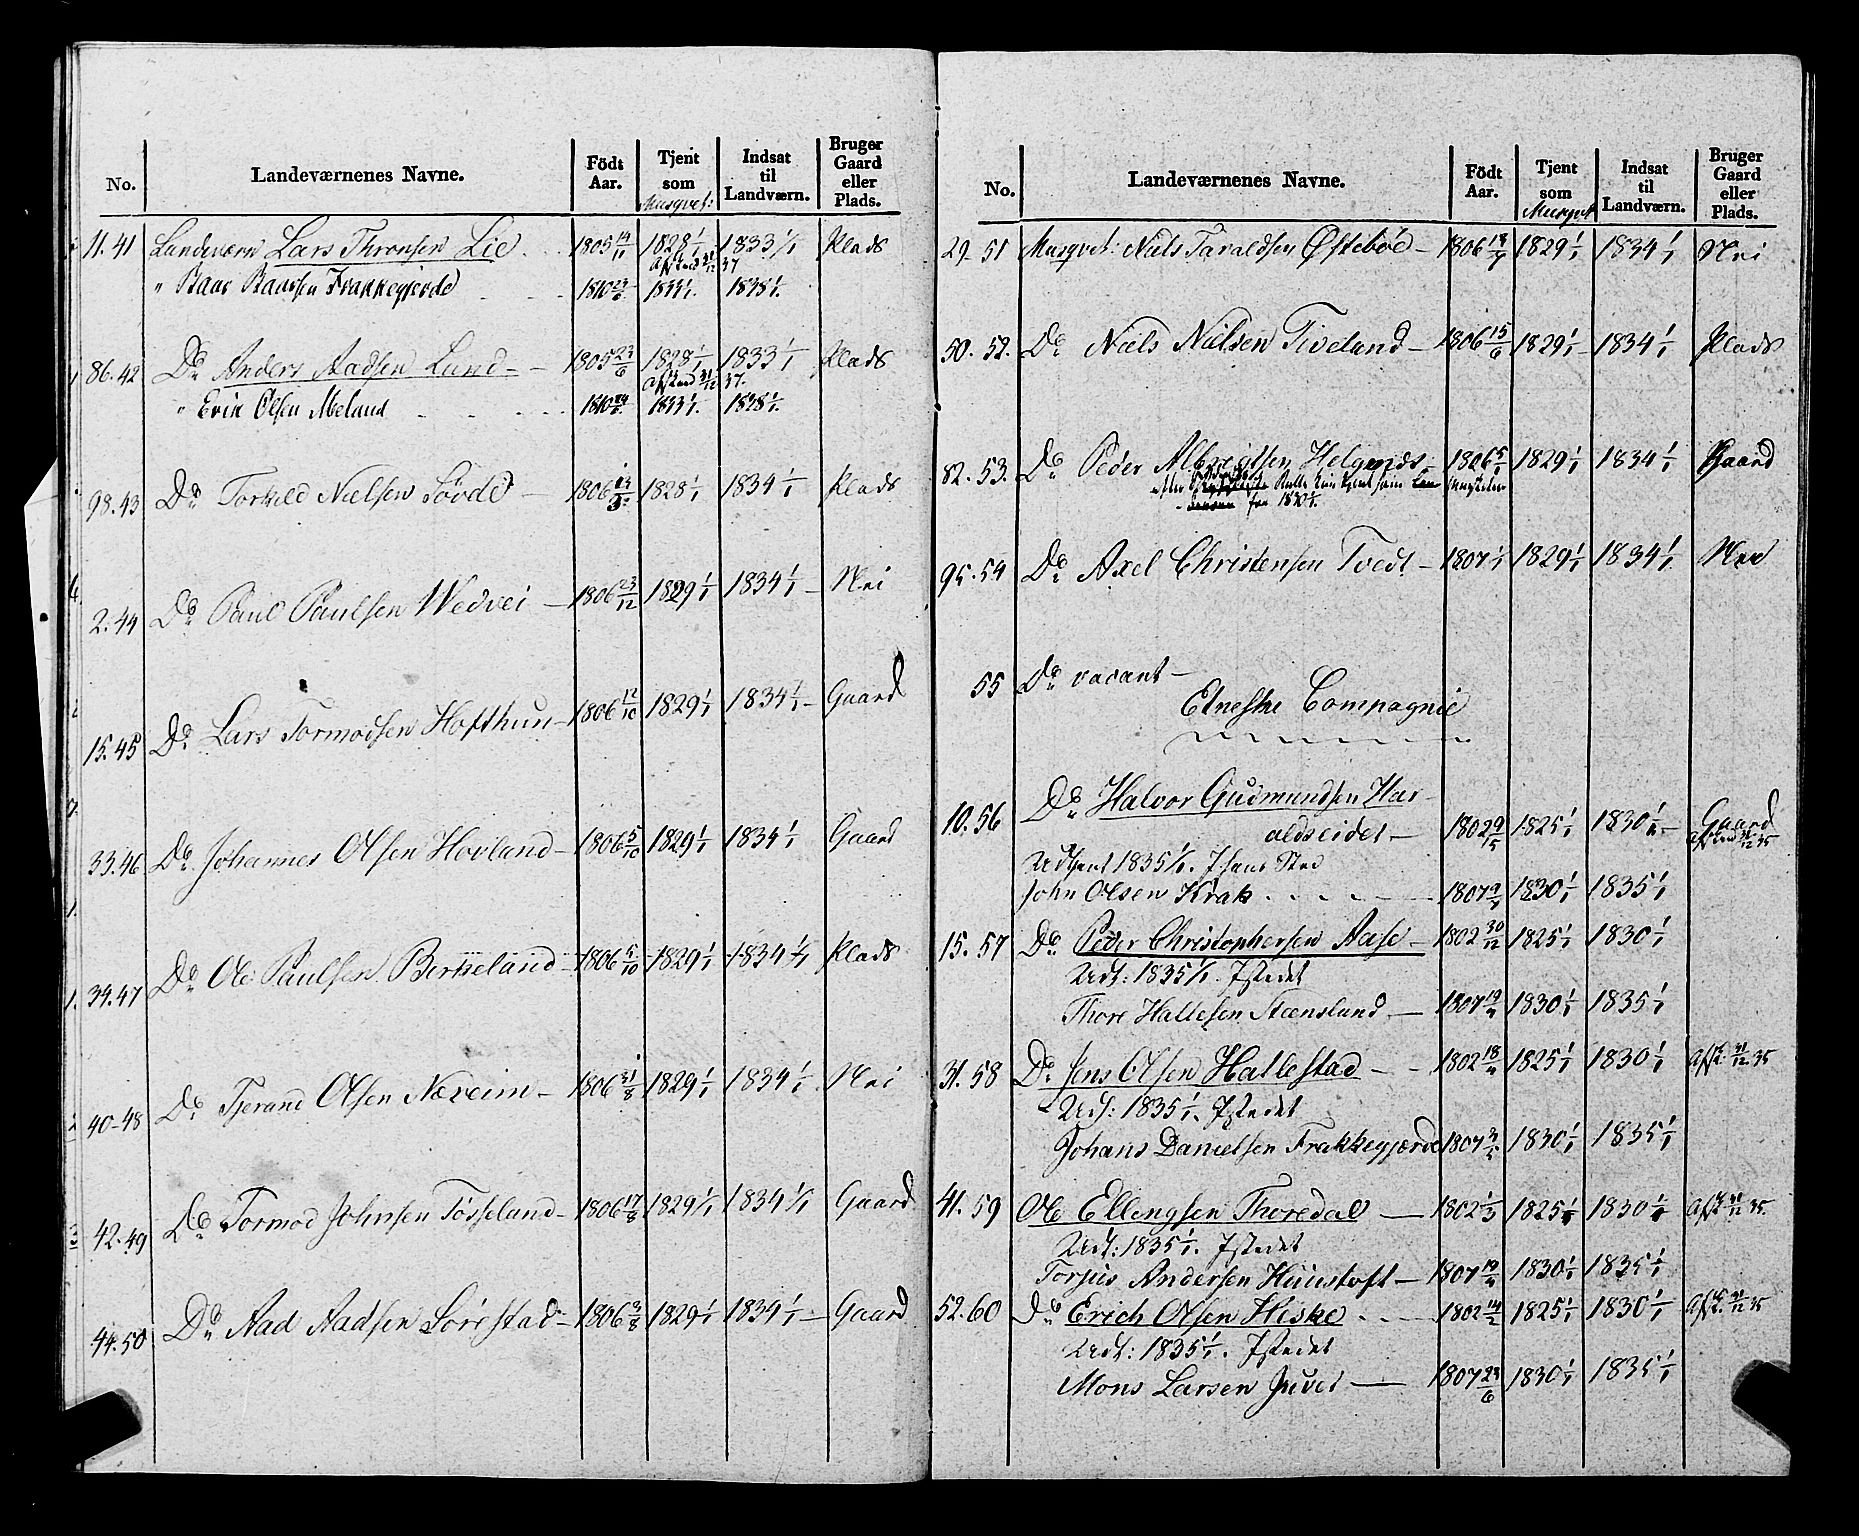 No. Landeværnenes Navne. Födt Aar. Tjent som Musqvet: Indsat til Landværn. Bruger Gaard eller Plads.
11. 41 Landeværn Lars Thronsen Lie 1805 14/11 1828 1/1 1833 1/1 Plads
Afskeed 31/12 37
" Baar Baarsen Frakkegjerde 1810 1833 1/1 1838 1/1
86. 42 Do Anders Aadsen Lund 1805 23/6 1828 1/1 1833 1/1 Plads
Afskeed 31/12 37.
" Erik Olsen Meland 1810 1833 1/1 1838 1/1
98. 43 Do Torkild Nielsen Sövde 1806 1828 1/1 1834 1/1 Plads
2. 44 Do Paul Paulsen Wedvei 1806 23/12 1829 1/1 1834 1/1 Nei
15. 45 Do Lars Tormodsen Hofthun 1806 12/10 1829 1/1 1834 1/1 Gaard
33. 46 Do Johannes Olsen Hovland 1806 5/10 1829 1/1 1834 1/1 Gaard
34. 47 Do Ole Paulsen Birkeland 1806 5/10 1829 1/1 1834 1/1 Plads
40-48 Do Tjerand Olsen Næveim 1806 31/8 1829 1/1 1834 1/1 Nei
42. 49 Do Tormod Johnsen Tösseland 1806 17/8 1829 1/1 1834 1/1 Gaard
44. 50 Do Aad Aadsen Sörestad 1806 3/8 1829 1/1 1834 1/1 Gaard
No. Landeværnenes Navne. Födt Aar. Tjent som Musqvet Indsat til Landværn. Bruger Gaard eller Plads.
29- 51 Musqvet: Niels Taraldsen Østebøe 1806 1829 1/1 1834 1/1 Nei
50. 52. Do Niels Nielsen Tiveland 1806 15/6 1829 1/1 1834 1/1 Plads
82. 53. Do Peder Albrigtsen Helgenæs 1806 5/1 1829 1/1 1834 1/1 Gaard
fra 1830 1/1.
95. 54 Do Axel Christensen Tvedt 1807 1/1 1829 1/1 1834 1/1 Nei
55 Do vacant
Etneske Compagnie
10. 56 Do Halvor Gudmundsen Har-
aldseidet 1802 9/5 1825 1/1 1830 1/1 Gaard
Afskeed 31/12 35
Udtjent 1835 1/1. I hans Sted
John Olsen Krak 1807 1830 1/1 1835 1/1
15. 57 Do Peder Christophersen Aase 1802 30/12 1825 1/1 1830 1/1
Udt: 1835 1/1. Istedet
Thore Hallesen Steensland 1807 1830 1/1 1835 1/1
31. 58 Do Jens Olsen Hallestad 1802 1825 1/1 1830 1/1 Afsk. 31/12 35
Udt: 1835 1/1. Istedet
Johans Danielsen Frakkegjærde 1807 1830 1/1 1835 1/1
41. 59 Ole Ellengsen Thoredal 1802 1/3 1825 1/1 1830 1/1 Afsk. 31/12 35
Udt: 1835 1/1. Istedet
Torjus Andersen Hunstoft 1807 1830 1/1 1835 1/1
52. 60 Do Erich Olsen Heske 1802 14/2 1825 1/1 1830 1/1 Afsk. 31/12 35
Udt: 1835 1/1. Istedet
Mons Larsen Juvet 1807 23/6 1830 1/1 1835 1/1